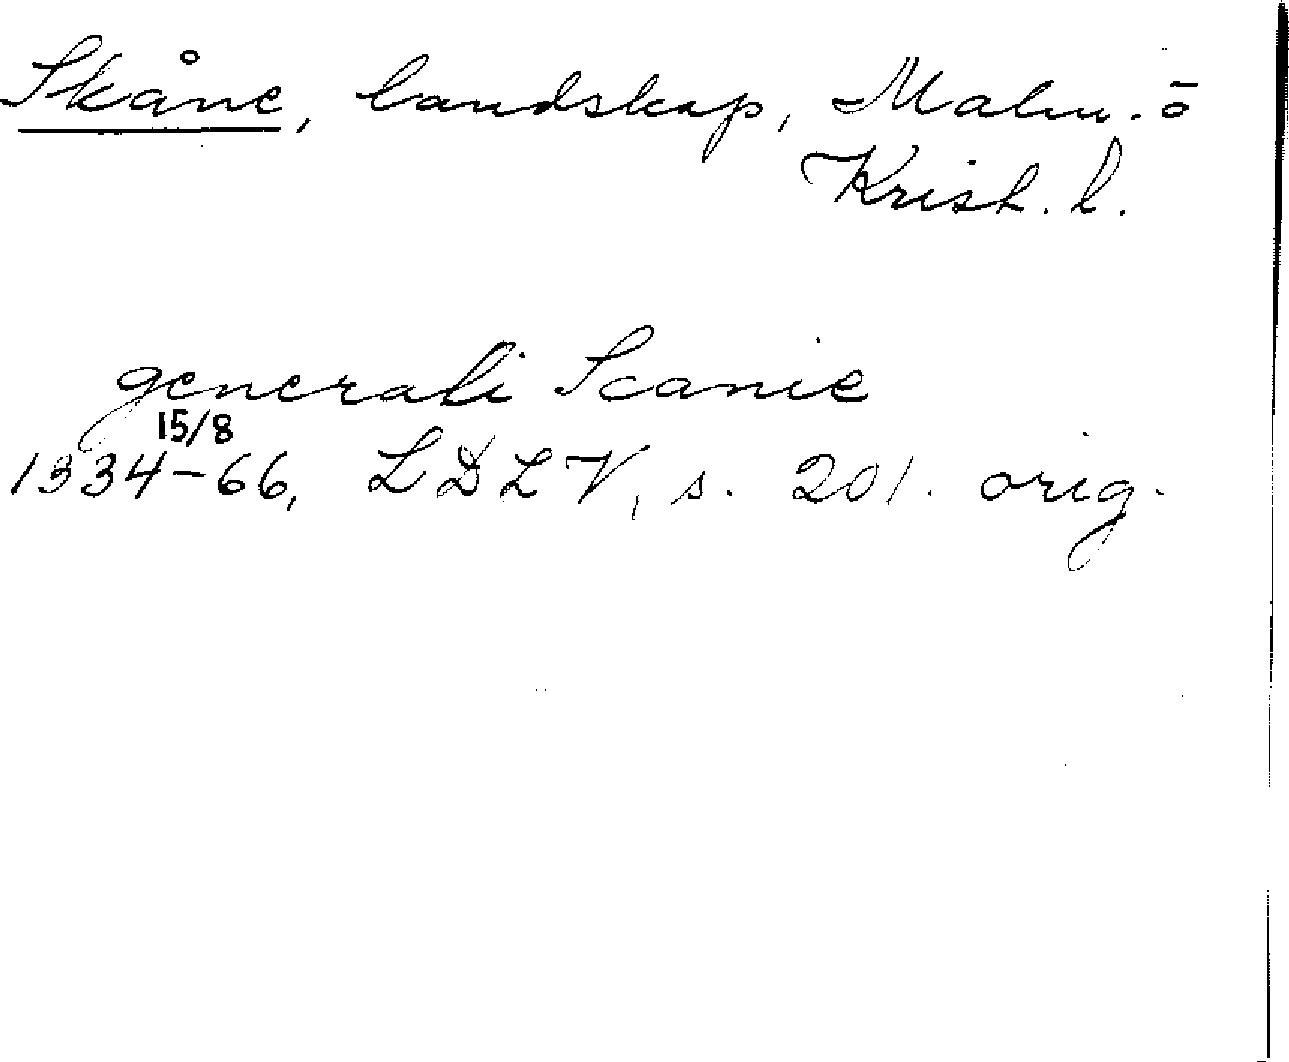 Skåne, landskap, Malm. o
Krist. l.
generali Scanie
15/8
1334-66, LDLV, s. 201. orig.